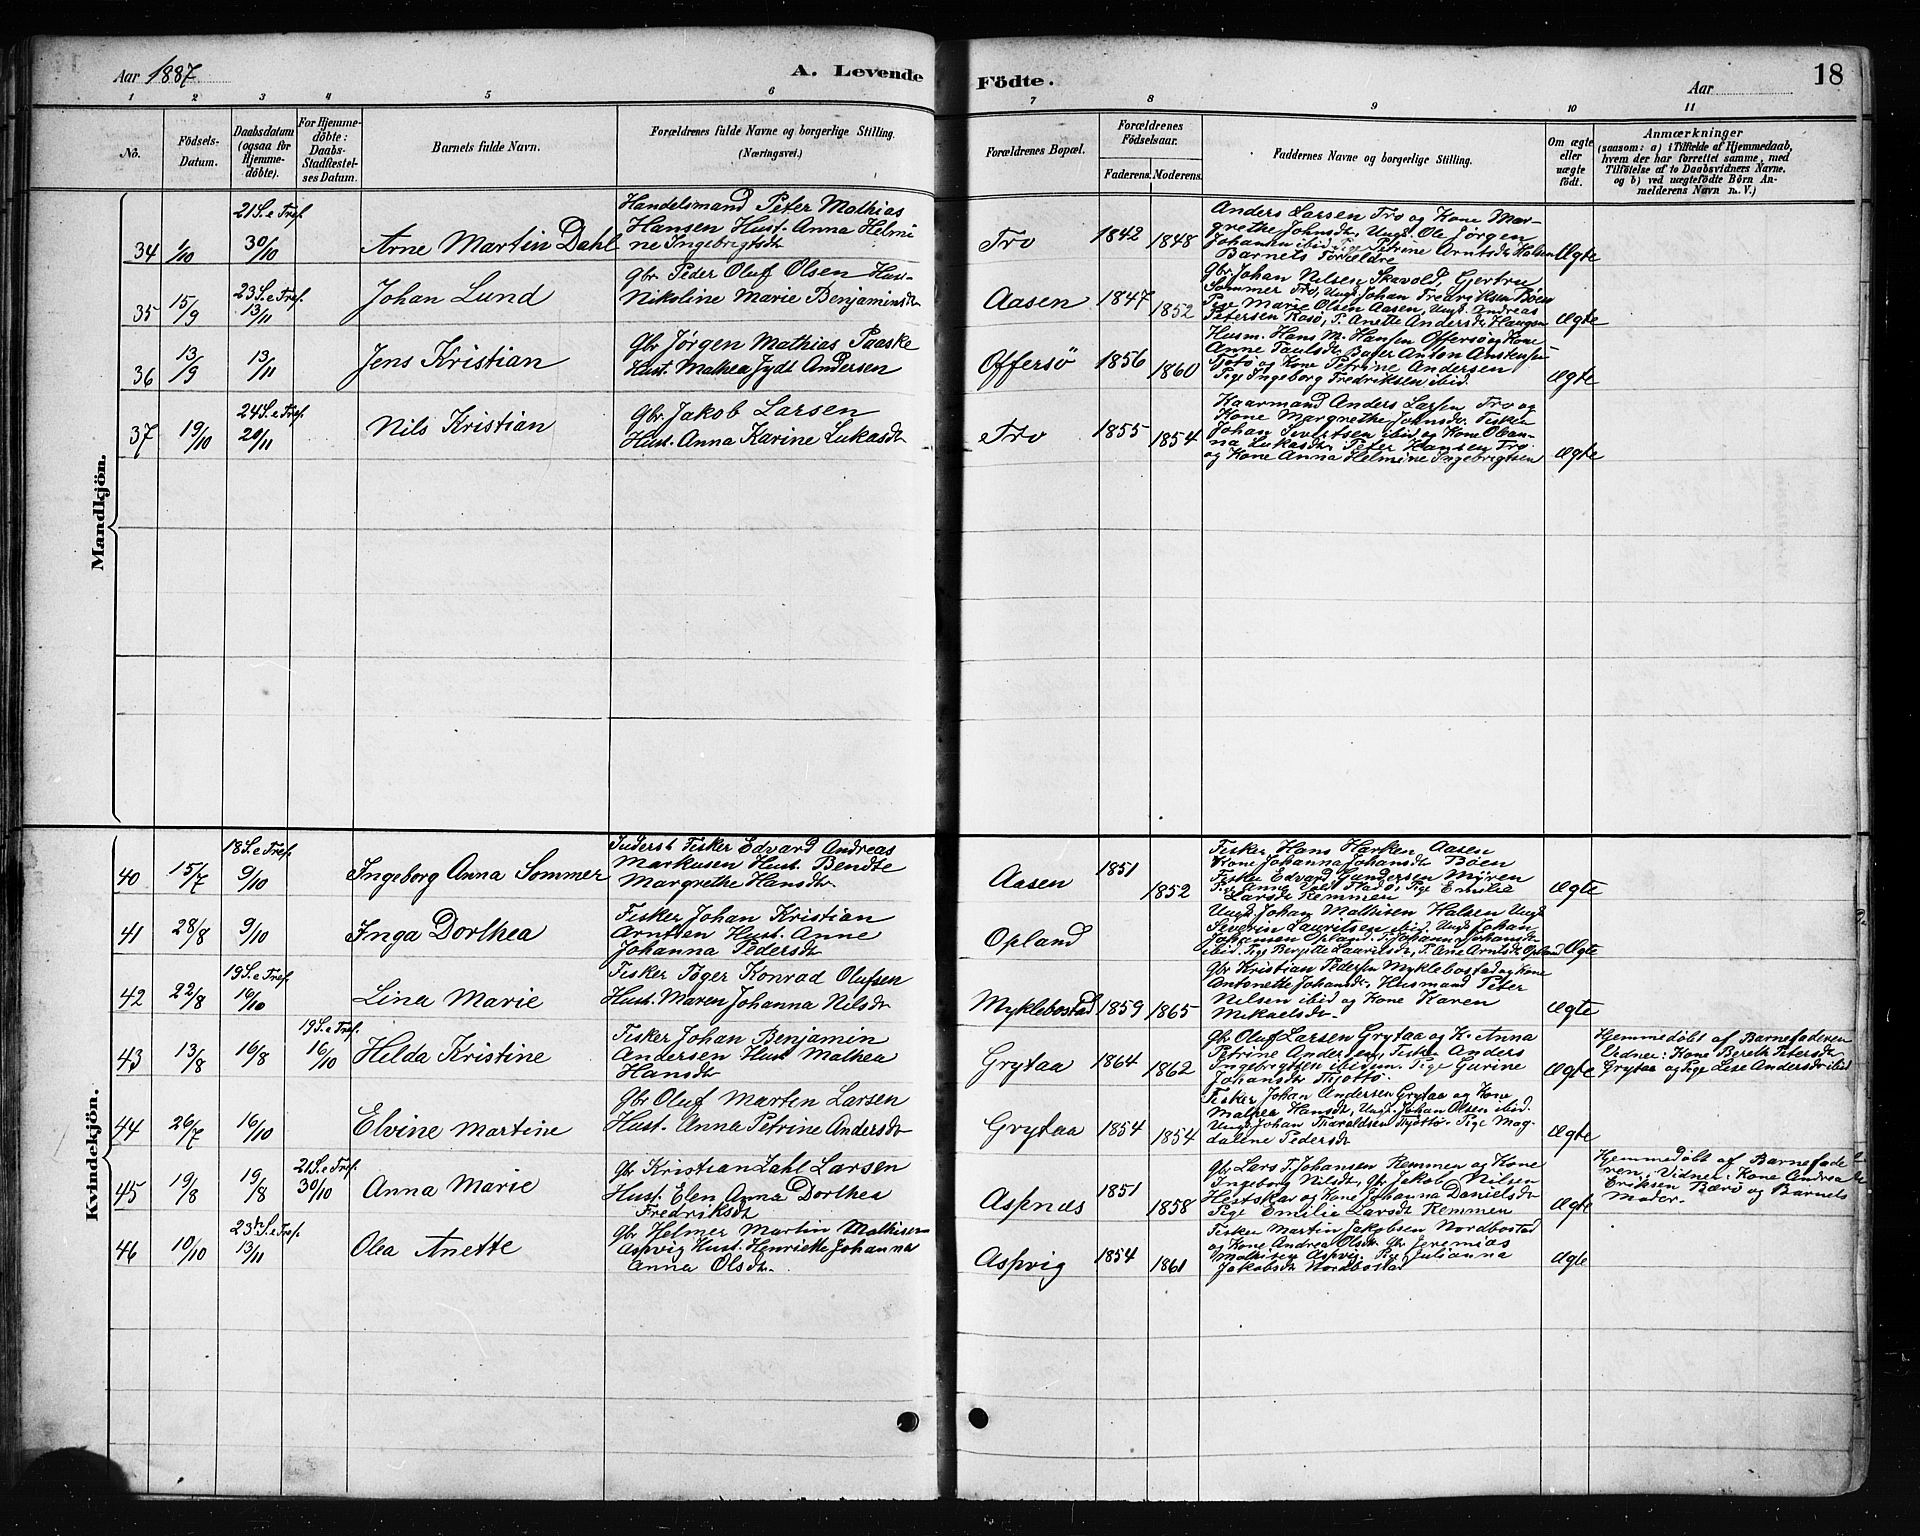 Aar 1887
A. Levende
Födte.
Aar
18
1 2 3 4 5 6 7 8 9 10 11
No.
Födsels-
Datum.
Daabsdatum
(ogsaa for
Hjemme-
döbte).
For Hjemme-
döbte:
Daabs-
Stadfæstel-
ses Datum.
Barnets fulde Navn.
Forældrenes fulde Navne og borgerlige Stilling.
(Næringsvei.)
Forældrenes Bopæl.
Forældrenes
Födselsaar.
Faderens. Moderens.
Faddernes Navne og borgerlige Stilling.
Om ægte
eller
uægte
födt.
Anmærkninger
(saasom: a) i Tilfælde af Hjemmedaab,
hvem der har forrettet samme, med
Tilföielse af to Daabsvidners Navne.
og b) ved uægtefödte Börn An-
melderens Navn m. V.)
Mandkjön.
34 1/10
21 S. e Tref
30/10
Arne Martin Dahl
Handelsmand Peter Mathias
Hansen Hust. Anna Helmi
ne Ingebrigtsdt
Tro 1842 1848
Anders Larsen Tro og Kone Mar-
grethe Johnsdt, Ungk. Ole Jørgen
Johansen ibid Pige Petrine Arntsdt Halsen
Barnets Forældre
Ægte
35 15/9
23 S. e Tref.
13/11
Johan Lund
Gbr. Peder Oluf Olsen Hus-
Nikoline Marie Benjaminsdt
Aasen 1847 1852
Gbr. Johan Nilsen Skavold, Gjertru
Sommer Tro, Ungk. Johan Fredriksen Böen
Pige Marie Olsen Aasen, Ungk. Andreas
Petersen Rosö, P. Anette Andersdt Haugen
Ægte
36 13/9 13/11
Jens Kristian
Gbr Jørgen Mathias Paaske
Hust. Mathea Jydt Andersen
Offersö 1856 1860
Husm. Hans M. Hansen Offersö og Kone
Anne Paulsdt Anton
Tjötö og Kone Petrine Andersen
Pige Ingeborg Fredriksen ibid.
Ægte
37 19/10
24 S. e Tref.
20/11
Nils Kristian
Gbr. Jakob Larsen
Hust. Anna Karine Lukasdt
Tro 1855 1854
Kaarmand Anders Larsen Tro og
Kone Margrethe Johnsdt. Fisker
Johan ibid og Kone Oban-
na Lukasdt, Peter Hansen Tro.
og Kone Anna Helmine Ingebrigtsen
Ægte
Kvindekjön.
40 15/7
18 S. e Tref.
9/10
Ingeborg Anna Sommer
Inderst Fisker Edvard Andreas
Markusen Hust. Bendte
Margrethe Hansdt.
Aasen 1851 1852
Fisker Hans Aasen
Kone Johanna Johansdt Böen
Fisker Edvard Gundersen Myren
Pige Anna Pige Emilie
Larsdt Remmen
Ægte
41 28/8 9/10
Inga Dorthea
Fisker Johan Kristian
Arntsen Hust. Anne
Johanna Pedersdt
Opland
Ungk. Johan Mathisen Halsen Ungk
Severin Lauritsen ibid. Ungk Johan
Opland. P. Johanna Johansdt
ibid. Pige Bergitte Lauritsdt, P. Ane Arntsdt Opland
Ægte
42 22/8
19 S. e Tref.
16/10
Lina Marie
Fisker Tøger Konrad Olufsen
Hust. Maren Johanna Nilsdt
Myklebostad 1859 1865
Gbr Kristian Pedersen Myklebostad og Kone
Antonette Johansdt. Husmand Peter
Nilsen ibid og Kone Karen
Mikaelsdt.
Ægte
43 13/8 16/8
19 S. e Tref.
16/10
Hilda Kristine
Fisker Johan Benjamin
Andersen Hust Mathea
Hansdt
Grytaa 1864 1862
Gbr Oluf Larsen Grytaa og K. Anna
Petrine Andersen, Fisker Anders
Ingebrigtsen ibidm. Pige Gurine
Johansdt Thjöttö.
Ægte
Hjemmedøbt af Barnefaderen
Vidner: Kone Bereth Petersdt
Grytaa og Pige Lise Andersdt ibid
44 26/7 16/10
Elvine Martine
Gbr Oluf Martin Larsen
Hust. Anna Petrine Andersdt
Grytaa 1854 1854
Fisker Johan Andersen Grytaa og Kone
Mathea Hansdt, Ungk. Johan Olsen ibid.
Ungk Johan Tjöttö. Pige Mag-
dalene Pedersdt
Ægte
45 19/8 19/8
21 S. e Tref.
30/10
Anna Marie
Gbr Kristian Zahl Larsen
Hust. Elen Anna Dorthea
Fredriksdt
Aspnæs 1851 1858
Gbr Lars T. Johansen Remmen og Kone
Ingeborg Nilsdt, Gbr Jakob Nilsen
og Kone Johanna Danielsdt
Pige Emilie Larsdt Remmen
Ægte
Hjemmedøbt af Barnefade
ren, Vidner: Kone Andrea
Eriksen Bærö og Barnets
Moder.
46 10/10
23de S. e Tref.
13/11
Olea Anette
Gbr Helmer Martin Mathisen
Aspvig Hust. Henriette Johanna
Anna Olsdt.
Aspvig 1854 1861
Fisker Martin Jakobsen Nordbostad
og Kone Andrea Olsdt. Gbr Jeremias
Mathisen Aspvig. Pige Julianna
Jakobsdt Nordbostad
Ægte